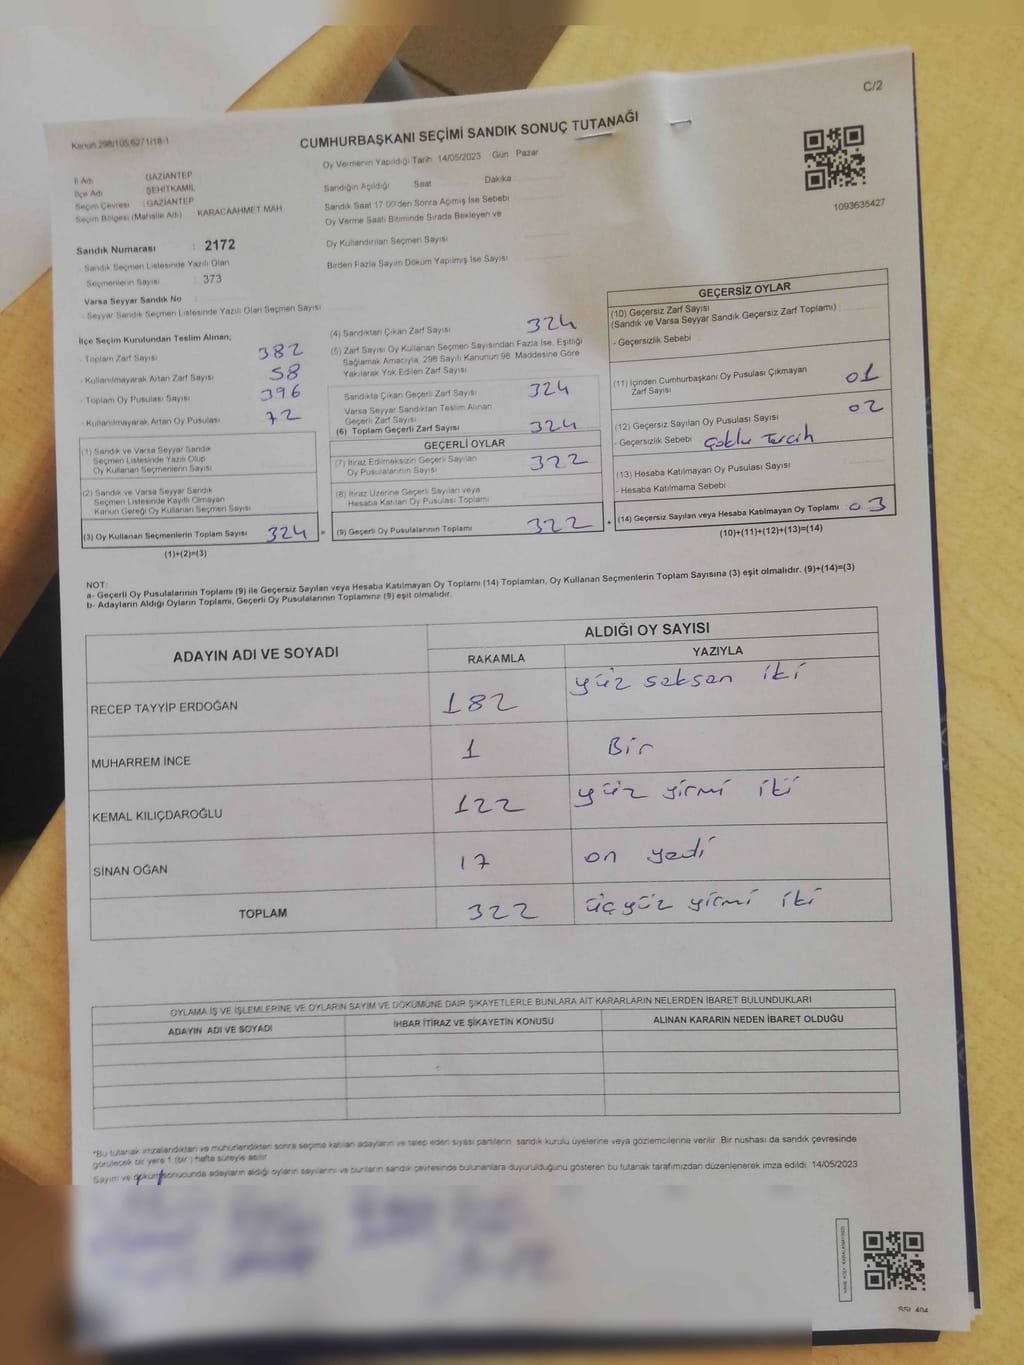 C/2
Kanun 298/105,6271/18-1
CUMHURBAŞKANI SEÇİMİ SANDIK SONUÇ TUTANAĞI
Oy Vermenin Yapıldığı Tarih 14/05/2023 Gün Pazar
İl Adı GAZİANTEP
İlçe Adı ŞEHİTKAMİL
Seçim Çevresi : GAZİANTEP
Seçim Bölgesi (Mahalle Adı) KARACAAHMET MAH.
Sandığın Açıldığı Saat Dakika
Sandık Saat 17.00'den Sonra Açımış İse Sebebi
Oy Verme Saati Bitiminde Sırada Bekleyen ve
Oy Kullandırılan Seçmen Sayısı
Birden Fazla Sayım Döküm Yapılmış İse Sayısı
1093635427
Sandık Numarası : 2172
- Sandık Seçmen Listesinde Yazılı Olan
Seçmenlerin Sayısı : 373
Varsa Seyyar Sandık No :
- Seyyar Sandık Seçmen Listesinde Yazılı Olan Seçmen Sayısı
İlçe Seçim Kurulundan Teslim Alınan;
- Toplam Zarf Sayısı 382
- Kullanılmayarak Artan Zarf Sayısı 58
- Toplam Oy Pusulası Sayısı 396
- Kullanılmayarak Artan Oy Pusulası 72
(1) Sandık ve Varsa Seyyar Sandık
Seçmen Listesinde Yazılı Olup
Oy Kullanan Seçmenlerin Sayısı
(2) Sandık ve Varsa Seyyar Sandık
Seçmen Listesinde Kayıtlı Olmayan
Kanun Gereği Oy Kullanan Seçmen Sayısı
(3) Oy Kullanan Seçmenlerin Toplam Sayısı 324 =
(1)+(2)=(3)
(4) Sandıktan Çıkan Zarf Sayısı 324
(5) Zarf Sayısı Oy Kullanan Seçmen Sayısından Fazla İse, Eşitliği
Sağlamak Amacıyla, 298 Sayılı Kanunun 98. Maddesine Göre
Yakılarak Yok Edilen Zarf Sayısı
Sandıkta Çıkan Geçerli Zarf Sayısı 324
Varsa Seyyar Sandıktan Teslim Alınan
Geçerli Zarf Sayısı
(6) Toplam Geçerli Zarf Sayısı 324
GEÇERLİ OYLAR
(7) İtiraz Edilmeksizin Geçerli Sayılan
Oy Pusulalarının Sayısı 322
(8) İtiraz Üzerine Geçerli Sayılan veya
Hesaba Katılan Oy Pusulası Toplamı
(9) Geçerli Oy Pusulalarının Toplamı 322 +
GEÇERSİZ OYLAR
(10) Geçersiz Zarf Sayısı
(Sandık ve Varsa Seyyar Sandık Geçersiz Zarf Toplamı)
- Geçersizlik Sebebi
(11) İçinden Cumhurbaşkanı Oy Pusulası Çıkmayan
Zarf Sayısı 01
(12) Geçersiz Sayılan Oy Pusulası Sayısı 02
- Geçersizlik Sebebi Çoklu Tercih
(13) Hesaba Katılmayan Oy Pusulası Sayısı
- Hesaba Katılmama Sebebi
(14) Geçersiz Sayılan veya Hesaba Katılmayan Oy Toplamı 03
(10)+(11)+(12)+(13)=(14)
NOT:
a- Geçerli Oy Pusulalarının Toplamı (9) ile Geçersiz Sayılan veya Hesaba Katılmayan Oy Toplamı (14) Toplamları, Oy Kullanan Seçmenlerin Toplam Sayısına (3) eşit olmalıdır. (9)+(14)=(3)
b- Adayların Aldığı Oyların Toplamı, Geçerli Oy Pusulalarının Toplamına (9) eşit olmalıdır.
ADAYIN ADI VE SOYADI
ALDIĞI OY SAYISI
RAKAMLA YAZIYLA
RECEP TAYYİP ERDOĞAN 182 yüz seksen iki
MUHARREM İNCE 1 Bir
KEMAL KILIÇDAROĞLU 122 yüz yirmi iki
SİNAN OĞAN 17 on yedi
TOPLAM 322 üçyüz yirmi iki
OYLAMA İŞ VE İŞLEMLERİNE VE OYLARIN SAYIM VE DÖKÜMÜNE DAİR ŞİKAYETLERLE BUNLARA AİT KARARLARIN NELERDEN İBARET BULUNDUKLARI
ADAYIN ADI VE SOYADI İHBAR İTİRAZ VE ŞİKAYETİN KONUSU ALINAN KARARIN NEDEN İBARET OLDUĞU
*Bu tutanak imzalandıktan ve mühürlendikten sonra seçime katılan adayların ve talep eden siyasi partilerin sandık kurulu üyelerine veya gözlemcilerine verilir. Bir nüshası da sandık çevresinde
görülecek bir yere 1 (bir) hafta süreyle asılır.
Sayım ve döküm sonucunda adayların aldığı oyların sayılarını ve bunların sandık çevresinde bulunanlara duyurulduğunu gösteren bu tutanak tarafımızdan düzenlenerek imza edildi. 14/05/2023